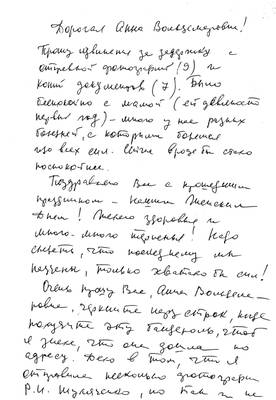 Дорогая Анна Вольдемаровна!
Прошу извинения за задержку с
отправкой фотографий (9) и
копий документов (7). Было
беспокойно с мамой (ей девяносто
первый год) - много у нее разных
болезней, с которыми боремся
изо всех сил. Сейчас вроде бы стало
поспокойнее.
Поздравляю Вас с прошедшим
праздником - нашим Женским
Днем! Много здоровья и
много-много терпенья! Надо
сказать, что последнему мы
научены, только хватило бы сил!
Очень прошу Вас, Анна Вольдема-
ровна, черкните пару строк, когда
получите эту бандероль, чтоб
я знала, что она дошла по
адресу. Дело в том, что я
отправила несколько фотографий
Р.И. но как и не